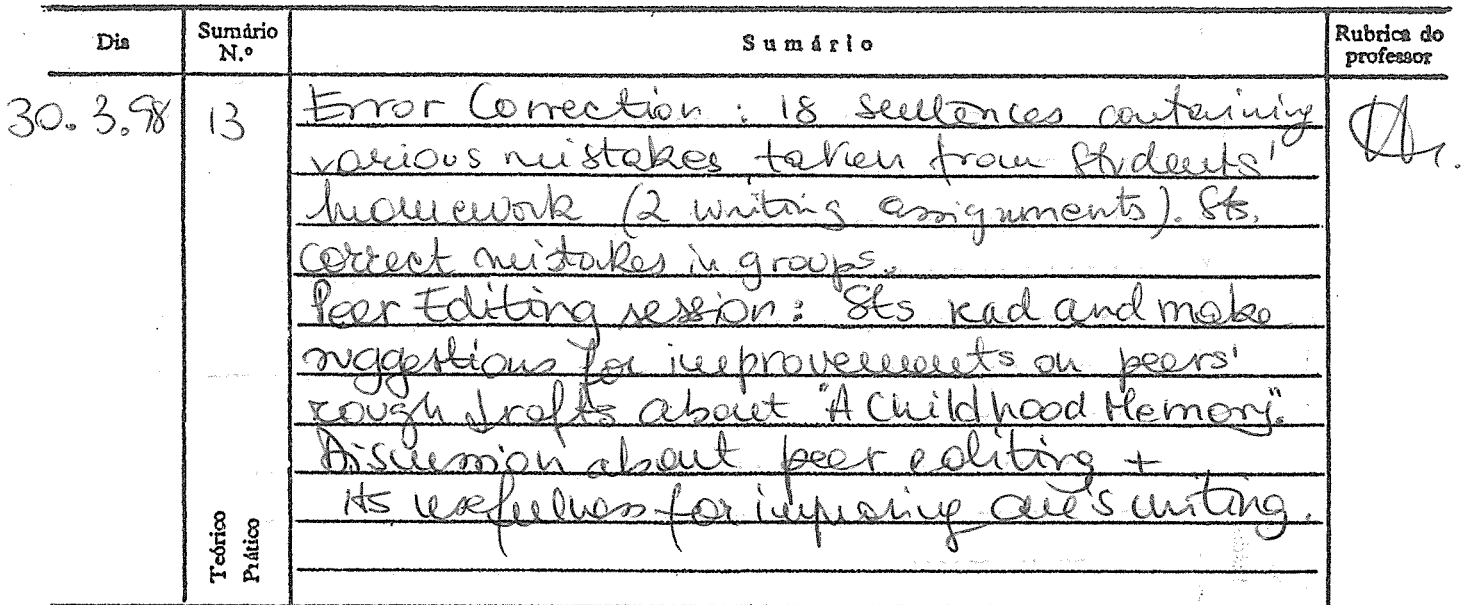 Dia Sumário N.º Sumário Rubrica do professor
30.3.98 13 Error Correction : 18 sentences containing
various mistakes taken from Students'
homework (2 writing assignments). Sts.
correct mistakes in groups.
Peer Editing session: Sts read and make
suggestions for improvements on peers'
rough drafts about "A Childhood Memory".
Discussion about peer editing +
its usefulness for improving one's writing.
Teórico
Prático